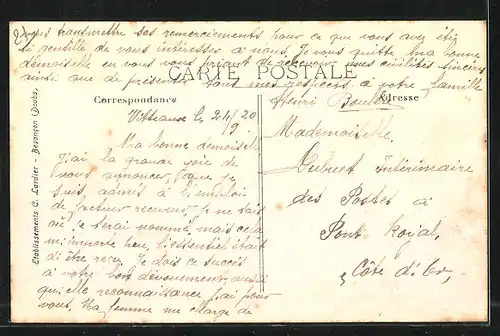 vous transmettre ses remerciements pour ce que vous avez été
si gentille de vous intéresser à nous. Je vous quitte ma bonne
demoiselle en vous priant de recevoir mes civilités sincères
ainsi que de présenter tous mes respects à votre famille
CARTE POSTALE
Henri
Correspondance
Adresse
Vitteaux le 24/9 20
Ma bonne demoiselle
J'ai la grande joie de
vous annoncer que je
suis admis à l'emploi
de facteur receveur, je ne sais
où je serai nommé, mais cela
m'importe peu, l'essentiel était
d'être reçu. Je dois ce succès
à votre bon dévouement, aussi
quelle reconnaissance j'ai pour
vous. Ma femme me charge de
Mademoiselle
Dubuet Intérimaire
des Postes à
Pont Royal,
Côte d'Or,
Etablissements C. Lardier - Besançon (Doubs)